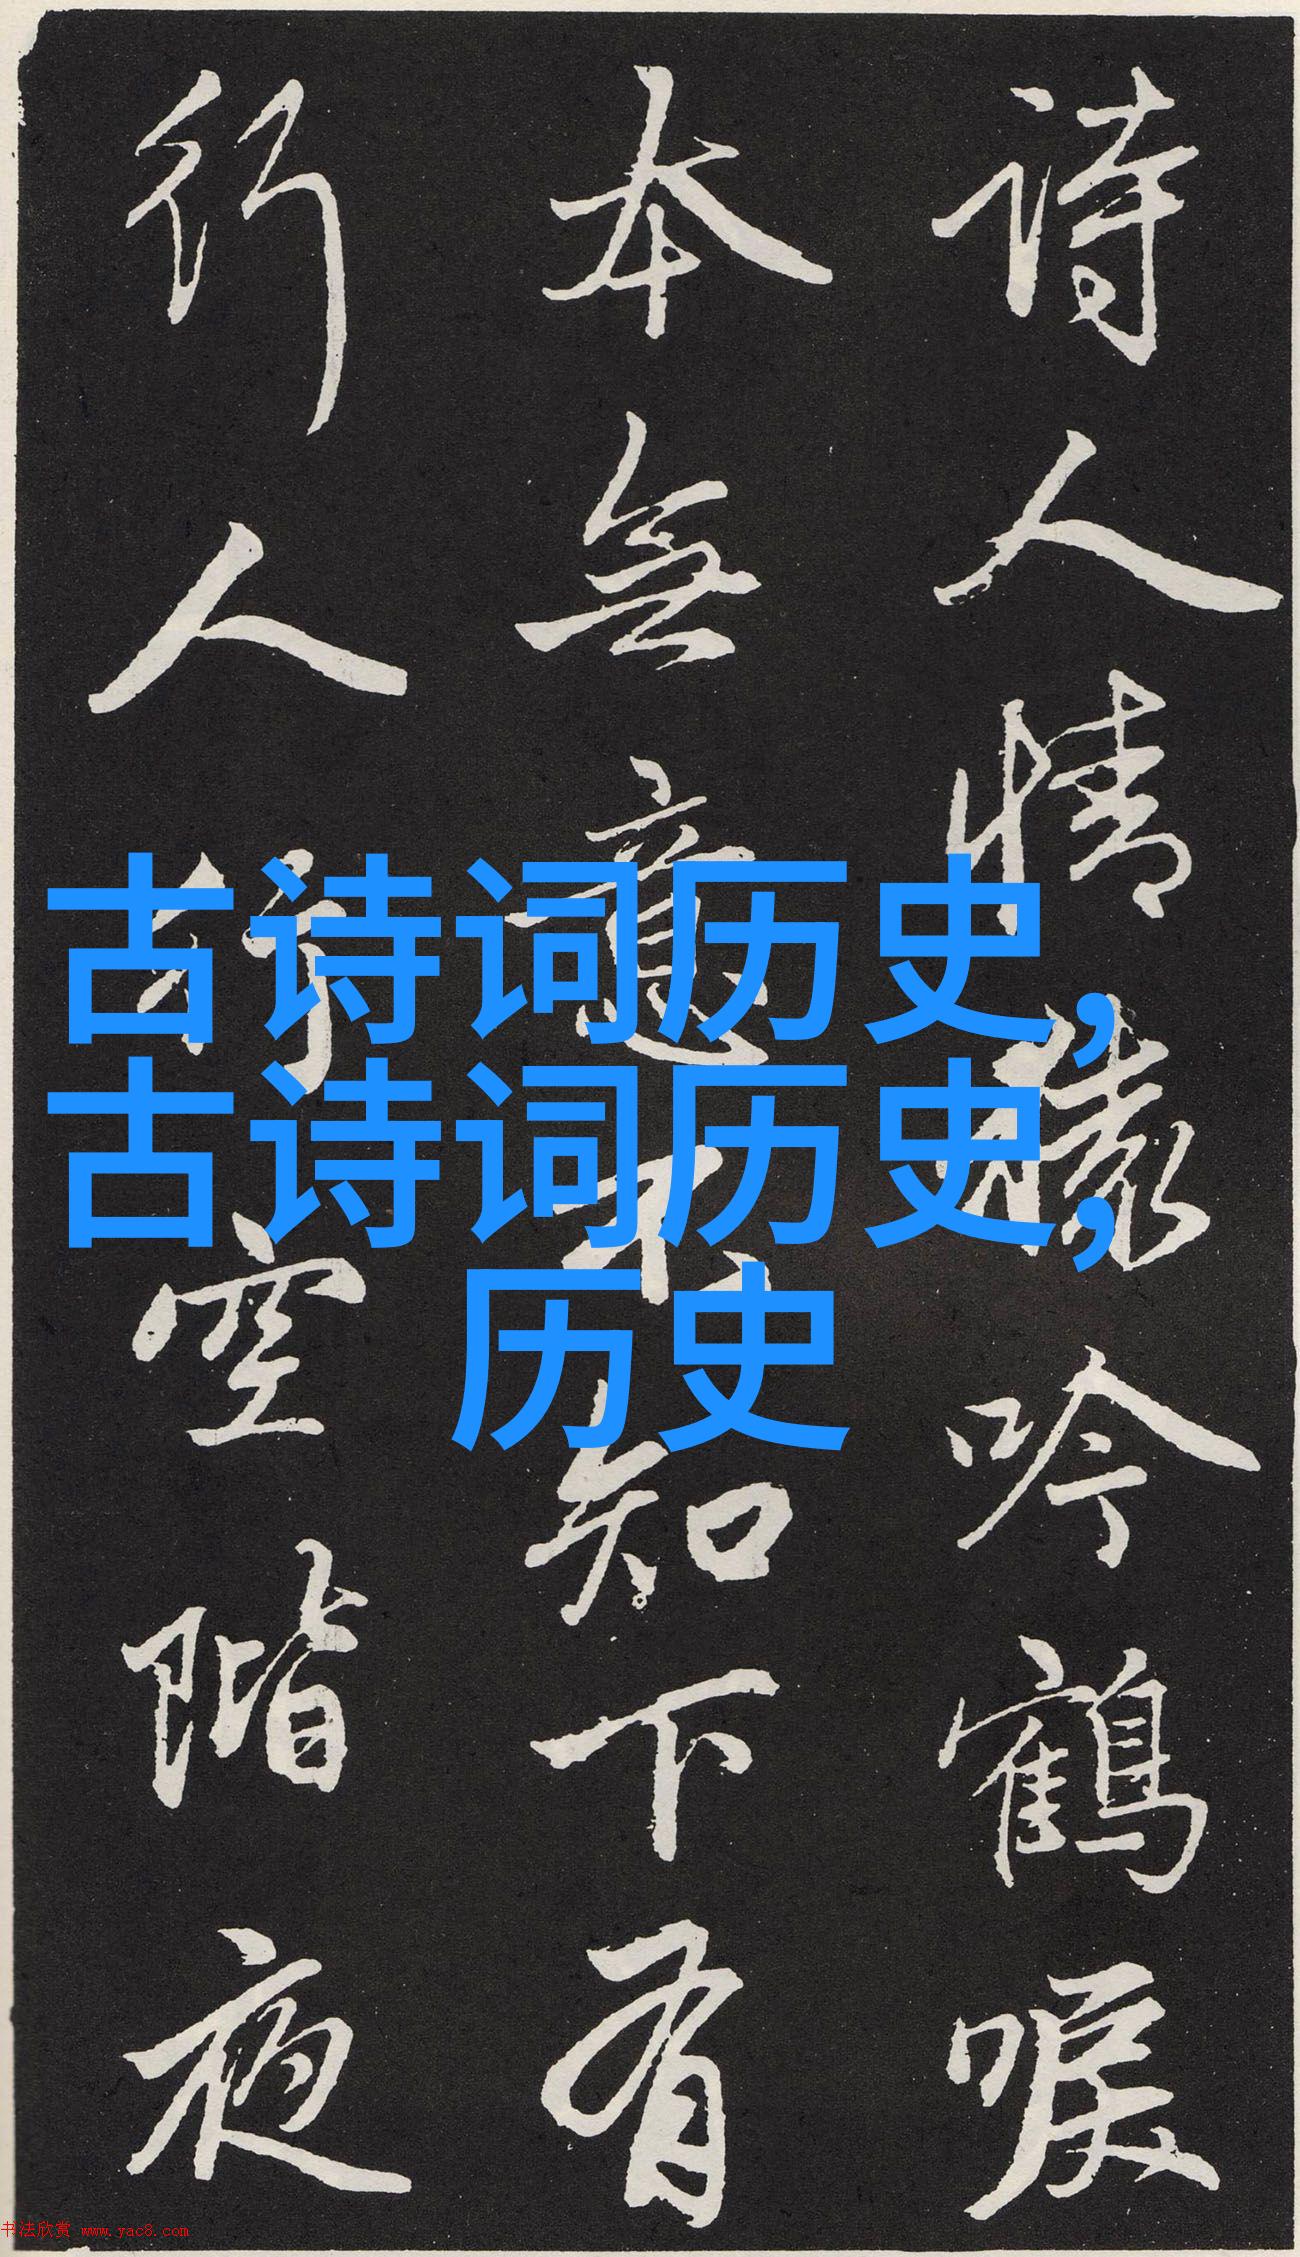 詩人情猿吟鶴唳
本無意不知下有
行人行空階夜
古诗词历史,
古诗词历史,
历史
书法欣赏 www.yac8.com